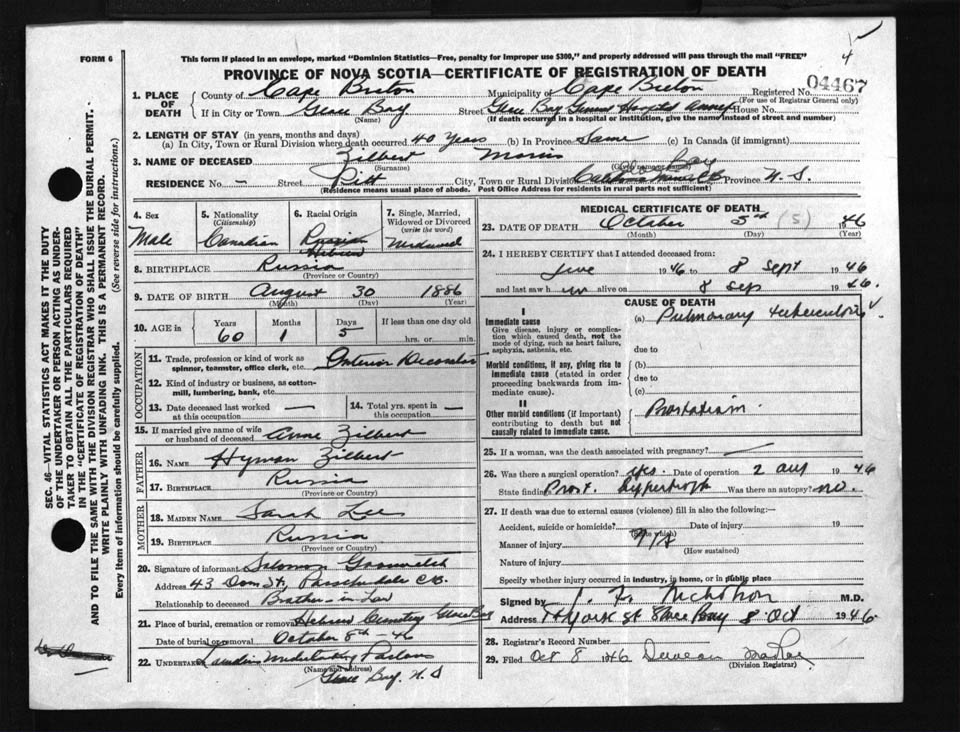 4
FORM 6
This form if placed in an envelope, marked "Dominion Statistics—Free, penalty for improper use $300," and properly addressed will pass through the mail "FREE"
PROVINCE OF NOVA SCOTIA—CERTIFICATE OF REGISTRATION OF DEATH
04467
1. PLACE OF DEATH County of Cape Breton Municipality of Cape Breton Registered No.
(For use of Registrar General only)
If in City or Town Glace Bay. Street Glace Bay General Hospital Annex House No.
(Name) (If death occurred in a hospital or institution, give the name instead of street and number)
2. LENGTH OF STAY (in years, months and days)
(a) In City, Town or Rural Division where death occurred 40 years (b) In Province Same (c) In Canada (if immigrant)
3. NAME OF DECEASED Zilbert Morris
(Surname)
RESIDENCE No. — Street Pitt City, Town or Rural Division Province N.S.
(Residence means usual place of abode. Post Office Address for residents in rural parts not sufficient)
4. Sex Male
5. Nationality (Citizenship) Canadian
6. Racial Origin Russian Hebrew
7. Single, Married, Widowed or Divorced (write the word) Widowed
8. BIRTHPLACE Russia
(Province or Country)
9. DATE OF BIRTH August 30 1886
(Month) (Day) (Year)
10. AGE in Years 60 Months 1 Days 5 If less than one day old
hrs. or min.
OCCUPATION
11. Trade, profession or kind of work as spinner, teamster, office clerk, etc. Interior Decorator
12. Kind of industry or business, as cotton-mill, lumbering, bank, etc.
13. Date deceased last worked at this occupation —
14. Total yrs. spent in this occupation —
15. If married give name of wife or husband of deceased Anne Zilbert
FATHER
16. NAME Hyman Zilbert
17. BIRTHPLACE Russia
(Province or Country)
MOTHER
18. MAIDEN NAME Sarah Lee
19. BIRTHPLACE Russia
(Province or Country)
20. Signature of informant Solomon
Address 43 Dom St., Passchendale C.B.
Relationship to deceased Brother-in-law
21. Place of burial, cremation or removal Hebrew Cemetery Glace Bay
Date of burial or removal October 8th - 46
22. UNDERTAKER Parlors
(Name and address)
Glace Bay. N.S
MEDICAL CERTIFICATE OF DEATH
23. DATE OF DEATH October 5th (5) 1946
(Month) (Day) (Year)
24. I HEREBY CERTIFY that I attended deceased from:
June 1946 to 8 Sept 1946
and last saw h im alive on 8 Sep 1946.
CAUSE OF DEATH
I
Immediate cause
Give disease, injury or complication which caused death, not the mode of dying, such as heart failure, asphyxia, asthenia, etc.
(a) Pulmonary tuberculosis
due to
Morbid conditions, if any, giving rise to immediate cause (stated in order proceeding backwards from immediate cause).
(b)
due to
(c)
II
Other morbid conditions (if important) contributing to death but not causally related to immediate cause.
Prostatism
25. If a woman, was the death associated with pregnancy? —
26. Was there a surgical operation? yes. Date of operation 2 aug 1946
State finding Prost. hypertroph Was there an autopsy? no.
27. If death was due to external causes (violence) fill in also the following:—
Accident, suicide or homicide? Date of injury 19
(State which)
Manner of injury
(How sustained)
Nature of injury
Specify whether injury occurred in industry, in home, or in public place
Signed by J. F. Nicholson M.D.
Address York St Glace Bay 8 Oct 1946
28. Registrar's Record Number
29. Filed Oct 8 1946 Duncan
(Division Registrar)
SEC. 46—VITAL STATISTICS ACT MAKES IT THE DUTY
OF THE UNDERTAKER OR PERSON ACTING AS UNDER-
TAKER TO OBTAIN ALL THE PARTICULARS REQUIRED
IN THE "CERTIFICATE OF REGISTRATION OF DEATH"
AND TO FILE THE SAME WITH THE DIVISION REGISTRAR WHO SHALL ISSUE THE BURIAL PERMIT.
WRITE PLAINLY WITH UNFADING INK. THIS IS A PERMANENT RECORD.
Every item of information should be carefully supplied. (See reverse side for instructions.)